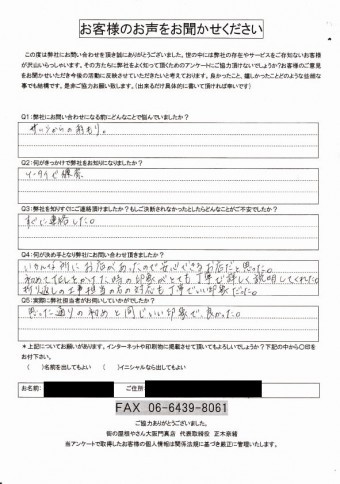 お客様のお声をお聞かせください
この度は弊社にお問い合わせを頂き誠にありがとうございました。世の中には弊社の存在やサービスをご存知ないお客様
が沢山いらっしゃいます。その方たちに弊社をよく知って頂くためのアンケートにご協力頂けないでしょうか?お客様のご意見
をお聞かせいただき今後の活動に反映させていただきたいと考えております。良かったこと、嬉しかったことどのような些細な
事でも結構です。是非ご協力お願い致します。(出来るだけ具体的に書いて頂ければ幸いです)
Q1:弊社にお問い合わせになる前にどんなことで悩んでいましたか?
サッシからの雨もり。
Q2:何がきっかけで弊社をお知りになりましたか?
Q3:弊社を知りすぐにご連絡頂けましたか?もしご決断されなかったとしたらどんなことがご不安でしたか?
すぐに連絡した。
Q4:何が決め手となり弊社にお問い合わせ頂けましたか?
所にお店があったので安心できるお店だと思った。
初めてTELをかけた時の印象がとても丁寧で詳しく説明してくれた。
折り返しの工事担当の方の対応も丁寧でいい印象だった。
Q5:実際に弊社担当者がお伺いしていかがでしたか?
思った通りの初めと同じいい印象で、良かった。
*上記についてお願いがあります。インターネットや印刷物に掲載させて頂いてもよろしいでしょうか?下記の中から〇印を
お付下さい。
( )名前を出してもよい ( )イニシャルなら出してもよい
お名前: ご住所
FAX 06-6439-8061
ご協力ありがとうございました。
街の屋根やさん大阪門真店 代表取締役 正木奈緒
※アンケートで取得したお客様の個人情報は関係法規に基づき厳正に管理いたします。